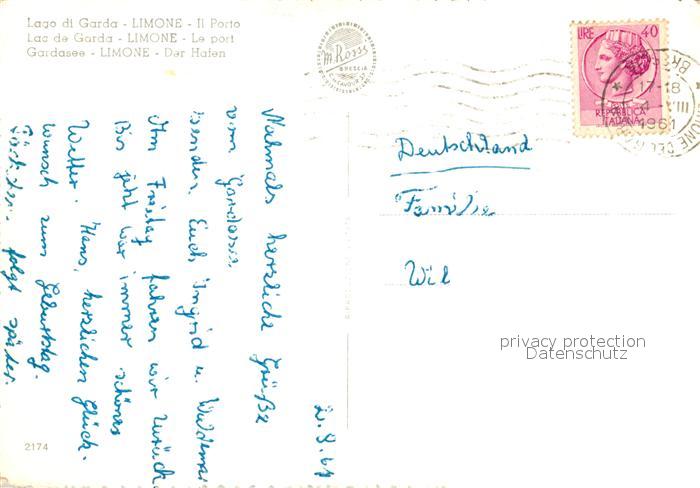 Lago di Garda - LIMONE - Il Porto
Lac de Garda - LIMONE - Le port
Gardasee - LIMONE - Der Hafen
M. Rossi
BRESCIA
LIRE 40
REPUBBLICA
ITALIANA
17-18
VIII
1961
2.8.61
Nahmals herzliche Grüße
vom Gardasee
senden Euch Ingrid u. Waldemar
Am Freitag fahren wir zurück.
Bis jetzt war immer schönes
Wetter. Hans, herzlichen Glück-
wunsch zum Geburtstag.
folgt später.
Deutschland
Familie
Wil
privacy protection
Datenschutz
2174